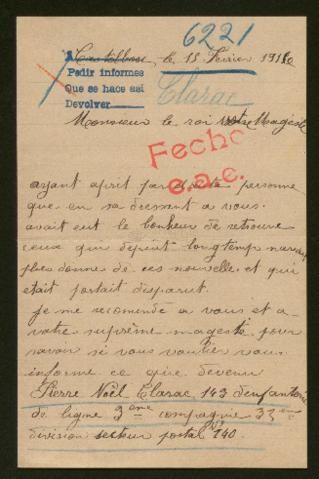 6221
Castelbon, le 18 Fevrier 1916
A
Pedir informes
Que se hace asi
Devolver
Clarac
Monsieur le roi votre Mageste
Fecho
c.a.c.
ayant aprit par dicite personne
que en sa dressent a vous
avait eut le bonheur de retrouve
ceux qui depuit longtemp navait
plus donne de ces nouvelle et qui
etait portait disparut.
je me recomende a vous et a
votre suprème mageste pour
savoir si vous vouliér vous
informe ce que devenir
Pierre Noël Clarac 143 d'enfanterie
de ligne 3 eme compagnie 32 eme
division secteur postal 140.